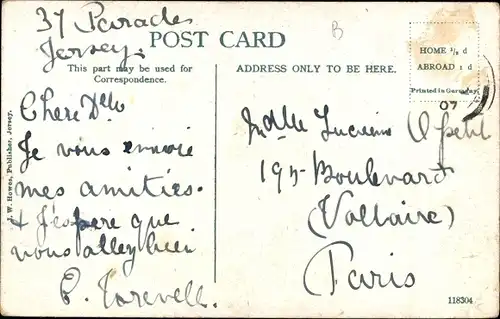 37 Parade
Jersey.
POST CARD
B
HOME ½ d
ABROAD 1 d
Printed in Germany
07
This part may be used for
Correspondence.
ADDRESS ONLY TO BE HERE.
Chere Dlle
Je vous envoie
mes amitiés.
& J'espere que
vous alley bien
C. Torevell.
J. W. Howes, Publisher, Jersey.
Mdlle Lucienne Petit
195 Boulevard
(Voltaire)
Paris
118304